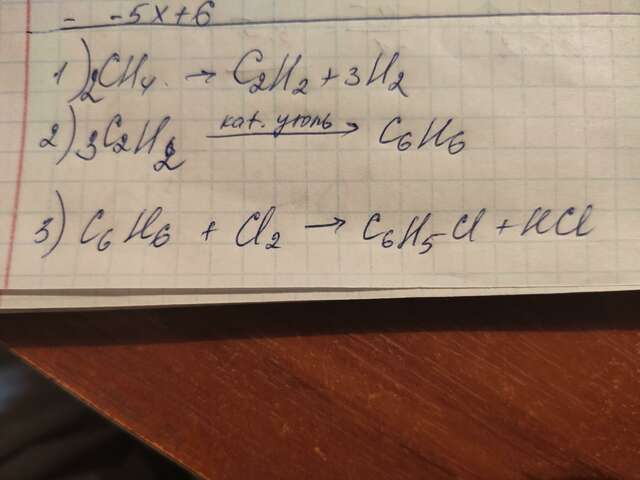 - -5x+6
1) 2CH4 → C2H2 + 3H2
2) 3C2H2 кат. уголь → C6H6
3) C6H6 + Cl2 → C6H5Cl + HCl